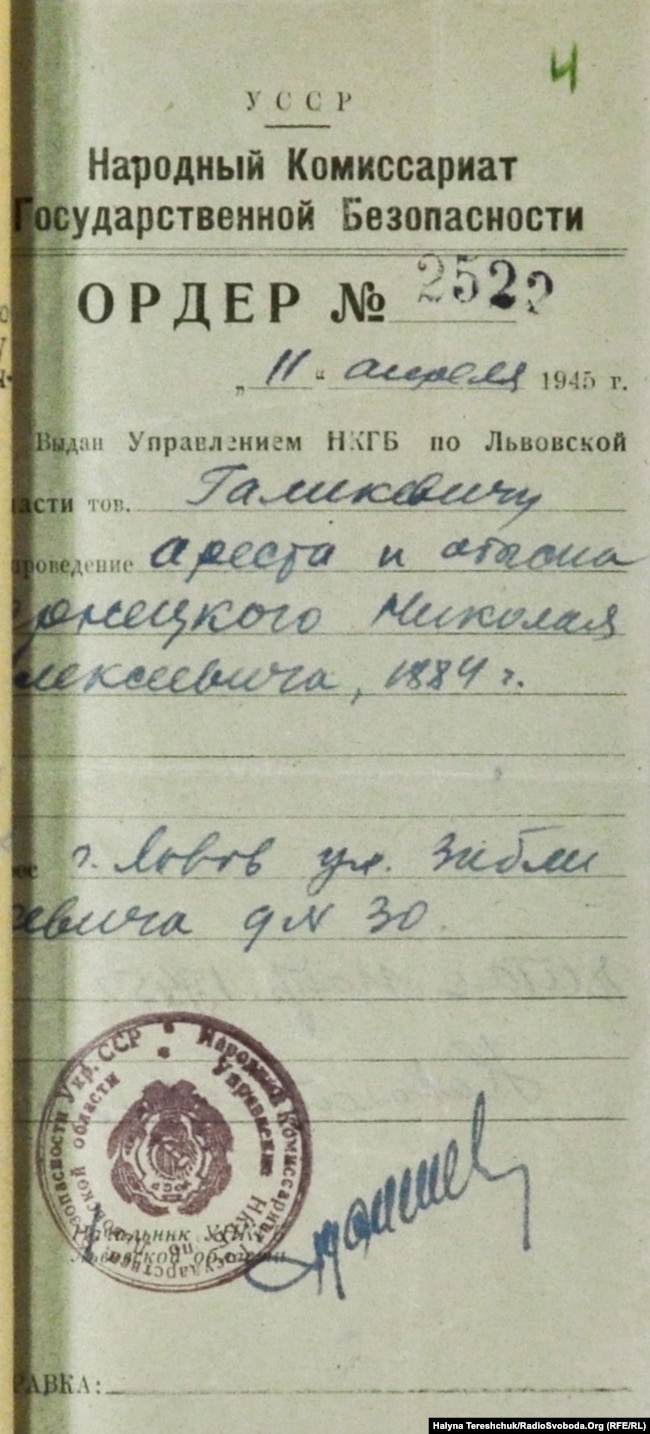 4
УССР
Народный Комиссариат
Государственной Безопасности
ОРДЕР № 2522
„11“ апреля 1945 г.
Выдан Управлением НКГБ по Львовской
ласти тов. Галикевичу
роведение ареста и обыска
рнецкого Николая
лексеевича, 1884 г.
рес г. Львов ул. Зибли
евича д № 30.
Народный Комиссариат Государственной Безопасности Укр. ССР
Управление НКГБ по Львовской области
Начальник УНКГБ
Львовской области
РАВКА:
Halyna Tereshchuk/RadioSvoboda.Org (RFE/RL)